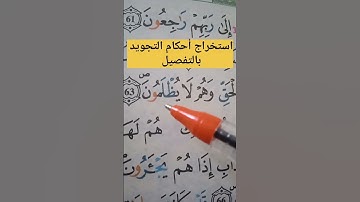 إِلَىٰ رَبِّهِمْ رَٰجِعُونَ ٦١
استخراج أحكام التجويد
بالتفصيل
لْحَقِّ وَهُمْ لَا يُظْلَمُونَ ٦٣
هُمْ لَهَا
إِذَا هُمْ يَجْـَٔرُونَ